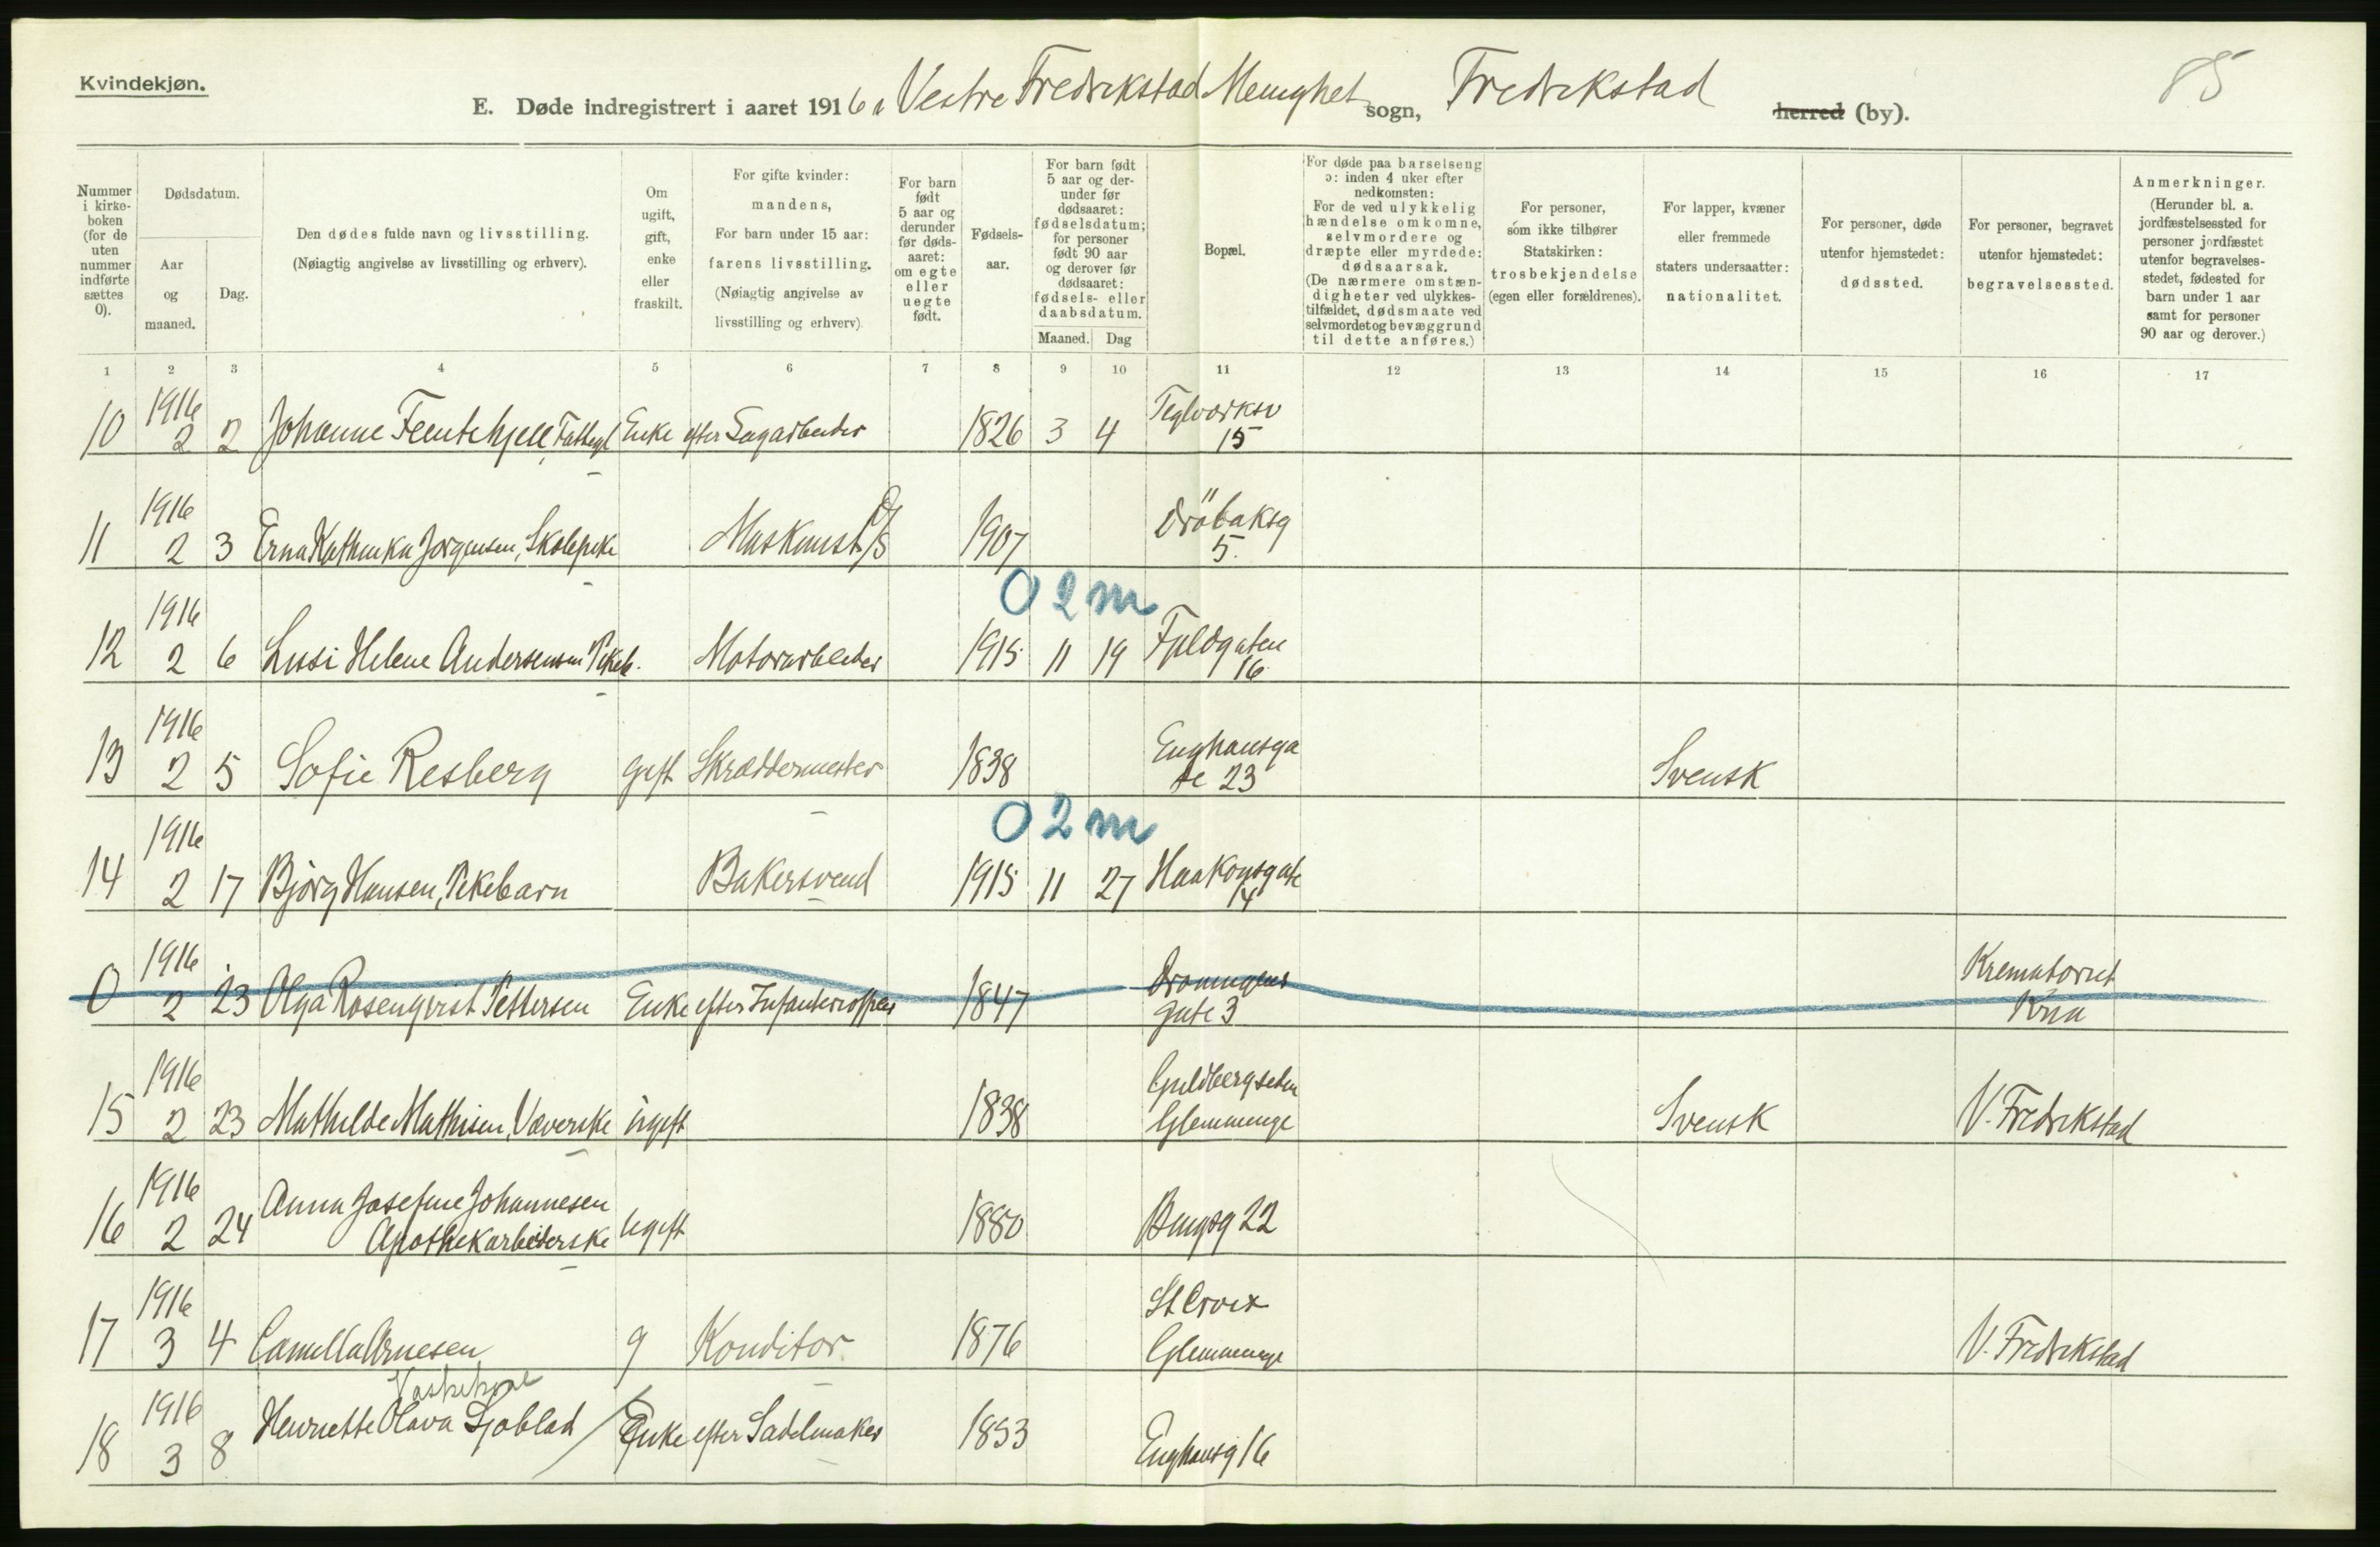 Kvindekjøn.
85
E. Døde indregistrert i aaret 1916 i Vestre Fredrikstad Menighet sogn, Fredrikstad herred (by).
Nummer i kirke-boken (for de uten nummer indførte sættes 0).
Dødsdatum.
Aar og maaned.
Dag.
Den dødes fulde navn og livsstilling.
(Nøiagtig angivelse av livsstilling og erhverv).
Om ugift, gift, enke eller fraskilt.
For gifte kvinder: mandens,
For barn under 15 aar: farens livsstilling.
(Nøiagtig angivelse av livsstilling og erhverv)
For barn født 5 aar og derunder før døds-aaret: om egte eller uegte født.
Fødsels-aar.
For barn født 5 aar og der-under før dødsaaret: fødselsdatum; for personer født 90 aar og derover før dødsaaret: fødsels- eller daabsdatum.
Maaned. Dag
Bopæl.
For døde paa barselseng ɔ: inden 4 uker efter nedkomsten:
For de ved ulykkelig hændelse omkomne, selvmordere og dræpte eller myrdede: dødsaarsak.
(De nærmere omstæn-digheter ved ulykkes-tilfældet, dødsmaate ved selvmordet og bevæggrund til dette anføres.)
For personer, som ikke tilhører Statskirken: trosbekjendelse (egen eller forældrenes).
For lapper, kvæner eller fremmede staters undersaatter: nationalitet.
For personer, døde utenfor hjemstedet: dødssted.
For personer, begravet utenfor hjemstedet: begravelsessted.
Anmerkninger.
(Herunder bl. a. jordfæstelsessted for personer jordfæstet utenfor begravelses-stedet, fødested for barn under 1 aar samt for personer 90 aar og derover.)
1 2 3 4 5 6 7 8 9 10 11 12 13 14 15 16 17
10 1916 2 2 Johanne Enke efter Sagarbeider 1826 3 4 15
11 1916 2 3 Erna Kathinka Jørgensen, Skolepike 1907 Dröbaksg 5.
0 2 m
12 1916 2 6 Lussi Helene Motorarbeider 1915 11 19 16
13 1916 2 5 Sofie Resberg gift Skræddermester 1838 Enghausga te 23 Svensk
0 2 m
14 1916 2 17 Bjørg Hansen, Pikebarn Bakersvend 1915 11 27 Haakonsgate 14
0 1916 2 23 Olga Rosenqvist Pettersen Enke efter 1847 Dronningens gate 3 Krematoriet Kria
15 1916 2 23 Mathilde Mathisen, Væverske ugift 1838 Glemminge Svensk V. Fredrikstad
16 1916 2 24 Anna Josefine Johannesen Apothekarbeiderske Ugift 1880 22
17 1916 3 4 Camilla Arnesen g Konditor 1876 St Croix Glemminge V. Fredrikstad
Vaskekone
18 1916 3 8 Henriette Olava Sjoblad Enke efter Sadelmaker 1853 Enghausg 16